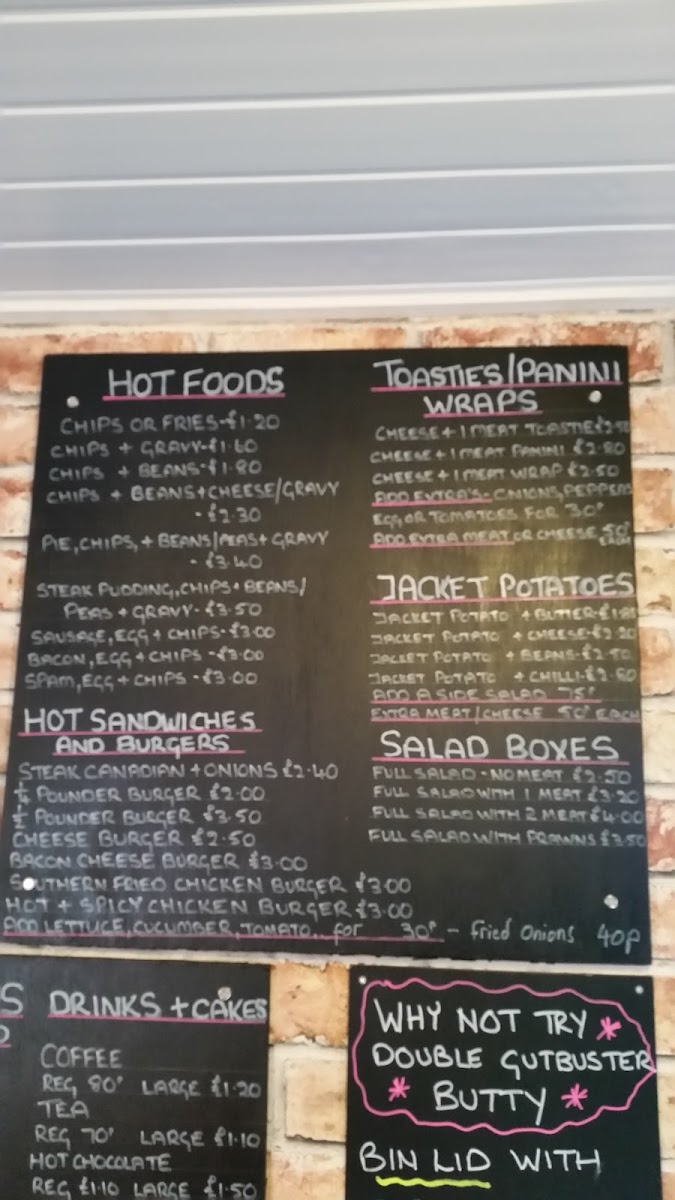 HOT FOODS
CHIPS OR FRIES-£1.20
CHIPS + GRAVY-£1.60
CHIPS + BEANS-£1.80
CHIPS + BEANS+CHEESE/GRAVY
-£2.30
PIE,CHIPS,+ BEANS/PEAS+GRAVY
-£3.40
STEAK PUDDING,CHIPS+BEANS/
PEAS+GRAVY-£3.50
SAUSAGE,EGG+CHIPS-£3.00
BACON,EGG+CHIPS-£3.00
SPAM,EGG+CHIPS-£3.00
HOT SANDWICHES
AND BURGERS
STEAK CANADIAN+ONIONS £2.40
¼ POUNDER BURGER £2.00
½ POUNDER BURGER £3.50
CHEESE BURGER £2.50
BACON CHEESE BURGER £3.00
SOUTHERN FRIED CHICKEN BURGER £3.00
HOT + SPICY CHICKEN BURGER £3.00
ADD LETTUCE,CUCUMBER,TOMATO.. for 30P - Fried Onions 40p
TOASTIES/PANINI
WRAPS
CHEESE+1 MEAT TOASTIE
CHEESE+1 MEAT PANINI £2.80
CHEESE+1 MEAT WRAP £2.50
ADD EXTRA'S-ONIONS,PEPPERS
EGG OR TOMATOES FOR 30P
ADD EXTRA MEAT OR CHEESE 50P
JACKET POTATOES
JACKET POTATO +BUTTER-£1.80
JACKET POTATO +CHEESE-£2.20
JACKET POTATO +BEANS-£2.50
JACKET POTATO +CHILLI-£2.60
ADD A SIDE SALAD 75P
EXTRA MEAT/CHEESE 50P EACH
SALAD BOXES
FULL SALAD-NO MEAT £2.50
FULL SALAD WITH 1 MEAT £3.20
FULL SALAD WITH 2 MEAT £4.00
FULL SALAD WITH PRAWNS £3.50
DRINKS + CAKES
COFFEE
REG 80P LARGE £1.20
TEA
REG 70P LARGE £1.10
HOT CHOCOLATE
REG £1.10 LARGE £1.50
WHY NOT TRY
DOUBLE GUTBUSTER
BUTTY
BIN LID WITH